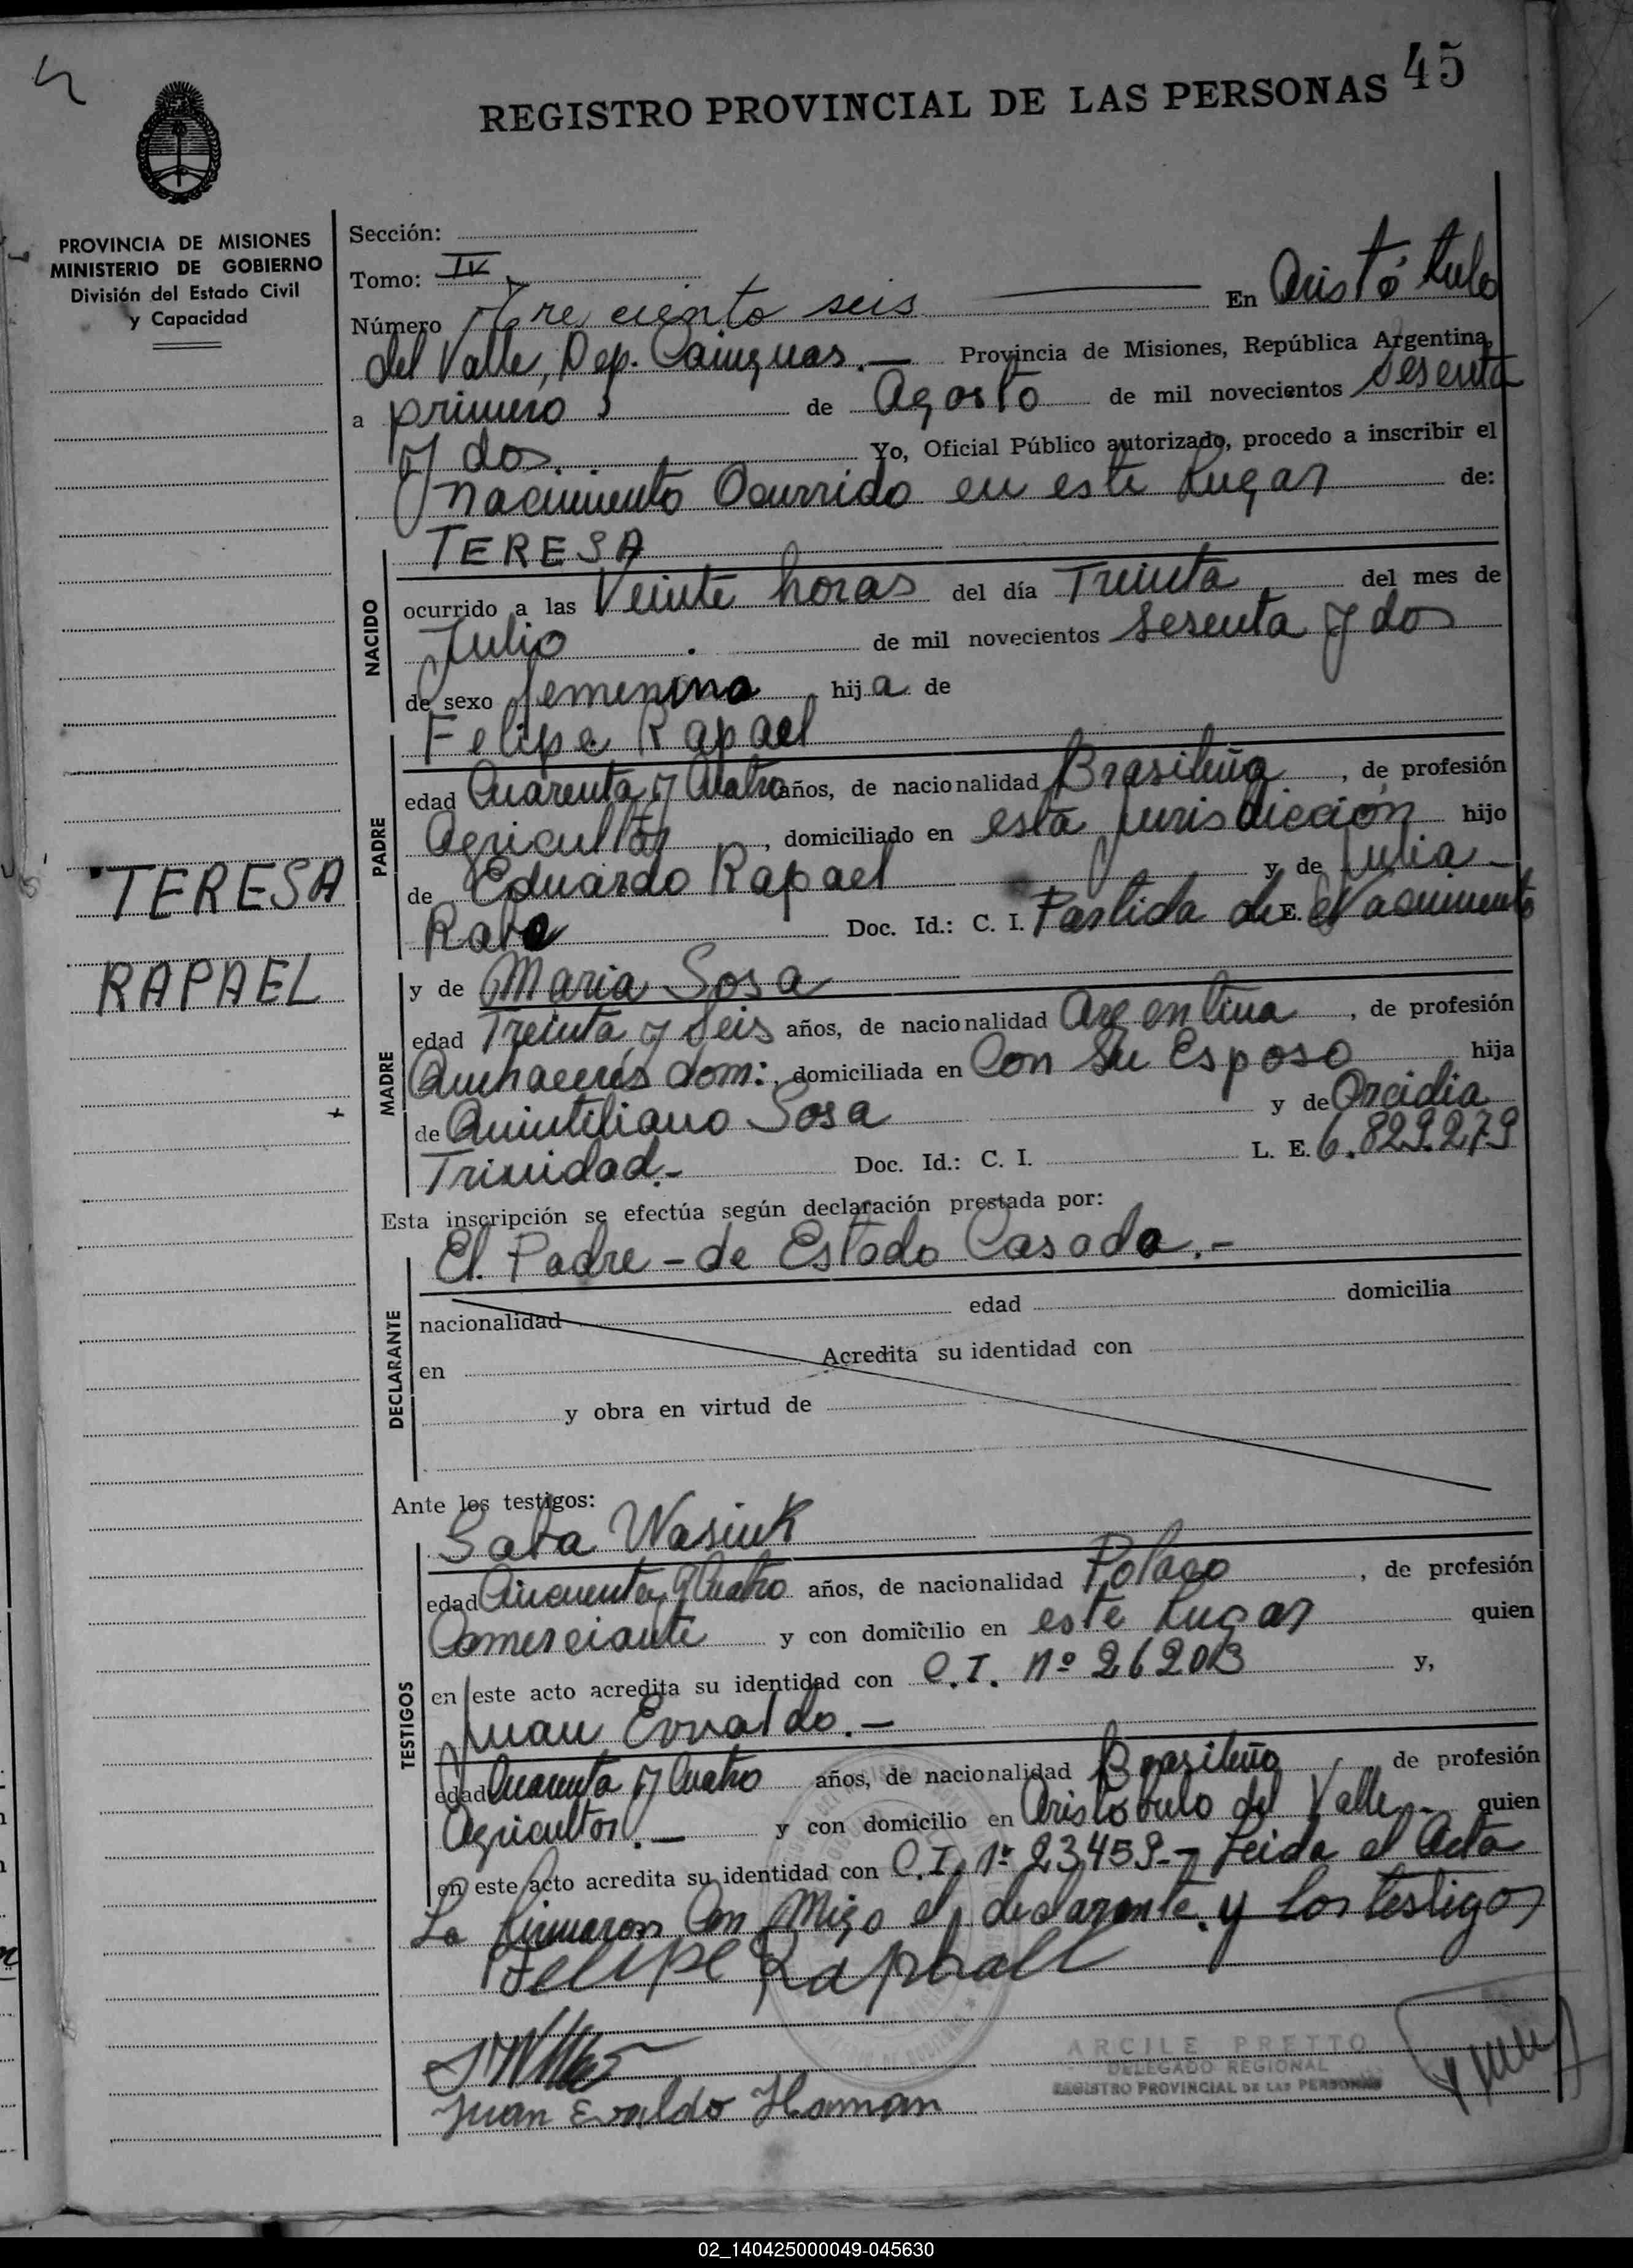 45
REGISTRO PROVINCIAL DE LAS PERSONAS
PROVINCIA DE MISIONES
MINISTERIO DE GOBIERNO
División del Estado Civil
y Capacidad
TERESA
RAPAEL
Sección:
Tomo: IV
Número Tre ciento seis En Aristóbulo
del Valle, Dep. Cainguas.- Provincia de Misiones, República Argentina,
a primero de Agosto de mil novecientos sesenta
y dos. Yo, Oficial Público autorizado, procedo a inscribir el
Nacimiento Ocurrido en este lugar de:
TERESA
NACIDO
ocurrido a las Veinte horas del día Treinta del mes de
Julio de mil novecientos sesenta y dos
de sexo femenino hija de
Felipe Rapael
PADRE
edad Cuarenta y Cuatro años, de nacionalidad Brasileña, de profesión
Agricultor, domiciliado en esta jurisdicción hijo
de Eduardo Rapael y de Julia
Doc. Id.: C. I. Partida de Nacimiento
MADRE
y de Maria Sosa
edad Treinta y seis años, de nacionalidad Argentina, de profesión
Quehaceres dom:, domiciliada en Con Su Esposo hija
de Quintiliano Sosa y de Orcidia
Trinidad.- Doc. Id.: C. I. L. E. 6.829.279
Esta inscripción se efectúa según declaración prestada por:
El Padre - de Estado Casado.-
DECLARANTE
nacionalidad edad domicilia
en Acredita su identidad con
y obra en virtud de
Ante los testigos:
Saba Wasiuk
TESTIGOS
edad Cincuenta y Cuatro años, de nacionalidad Polaco, de profesión
Comerciante y con domicilio en este lugar quien
en este acto acredita su identidad con C.I. Nº y,
Juan Evaldo.-
edad Cuarenta y Cuatro años, de nacionalidad Brasileño, de profesión
Agricultor.- y con domicilio en Aristóbulo del Valle - quien
en este acto acredita su identidad con C.I. Nº 23459.- Leida el Acta
La firmaron Con Migo el declarante y los testigos
Felipe Raphael
Juan Evaldo Haman
ARCILE PRETTO
DELEGADO REGIONAL
REGISTRO PROVINCIAL DE LAS PERSONAS
02_140425000049-045630